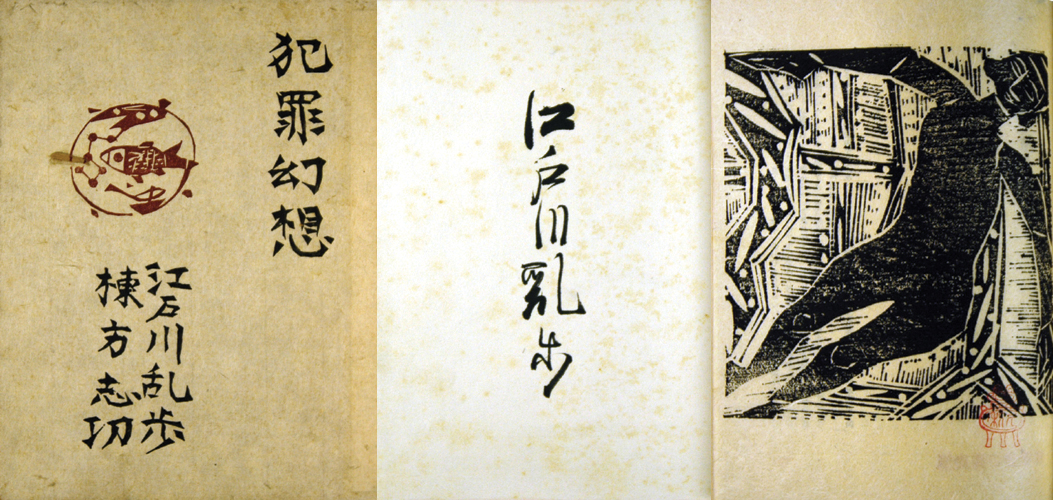 犯罪幻想
江戸川乱歩
棟方志功
江戸川乱歩